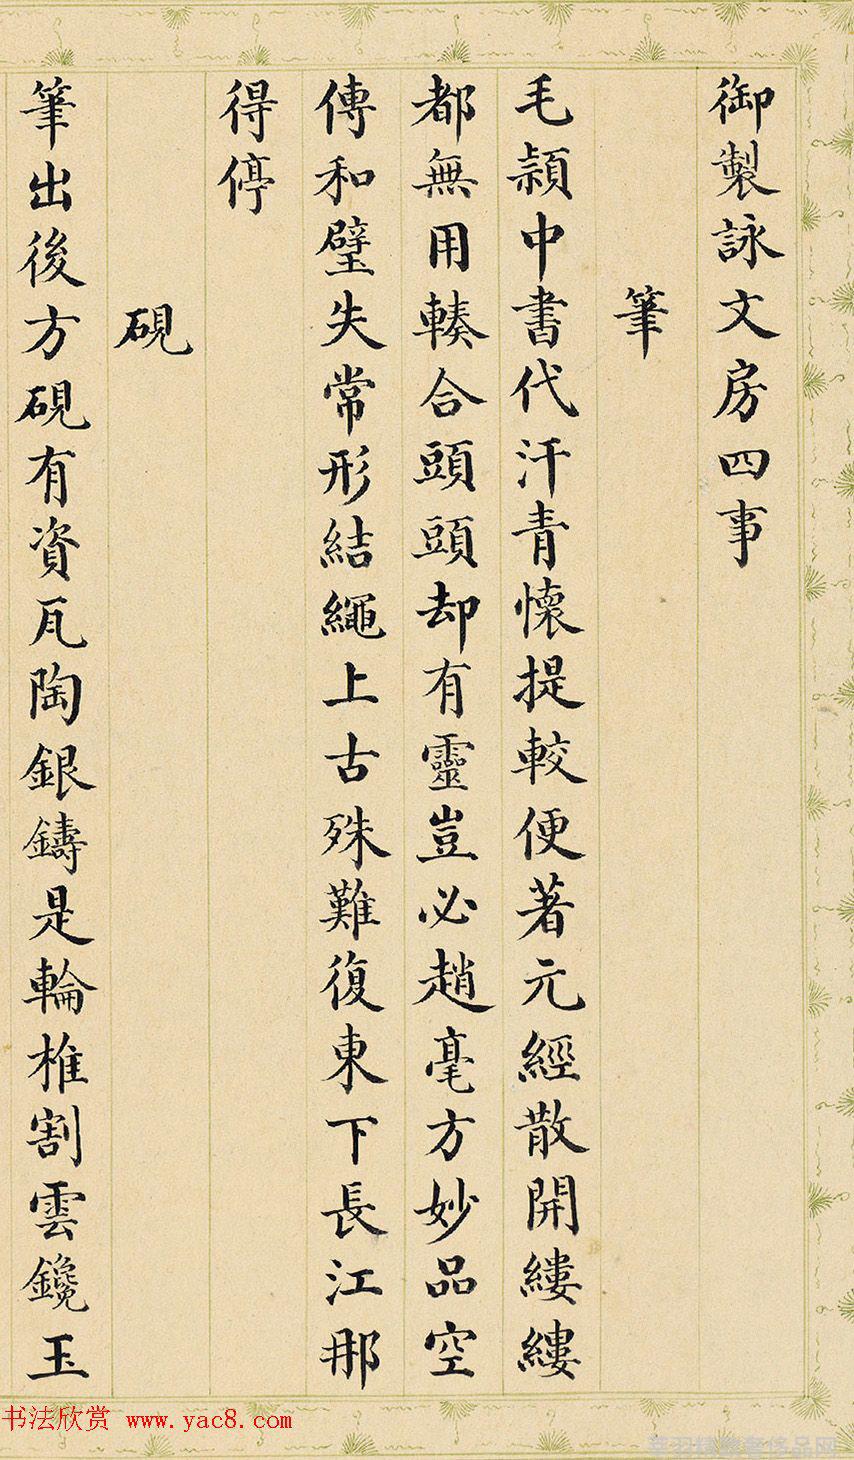 御製詠文房四事
筆
毛穎中書代汗青懷提較便著元經散開縷縷
都無用輳合頭頭却有靈豈必趙毫方妙品空
傳和璧失常形結繩上古殊難復東下長江那
得停
硯
筆出後方硯有資瓦陶銀鑄是輪椎割雲鑱玉
书法欣赏 www.yac8.com